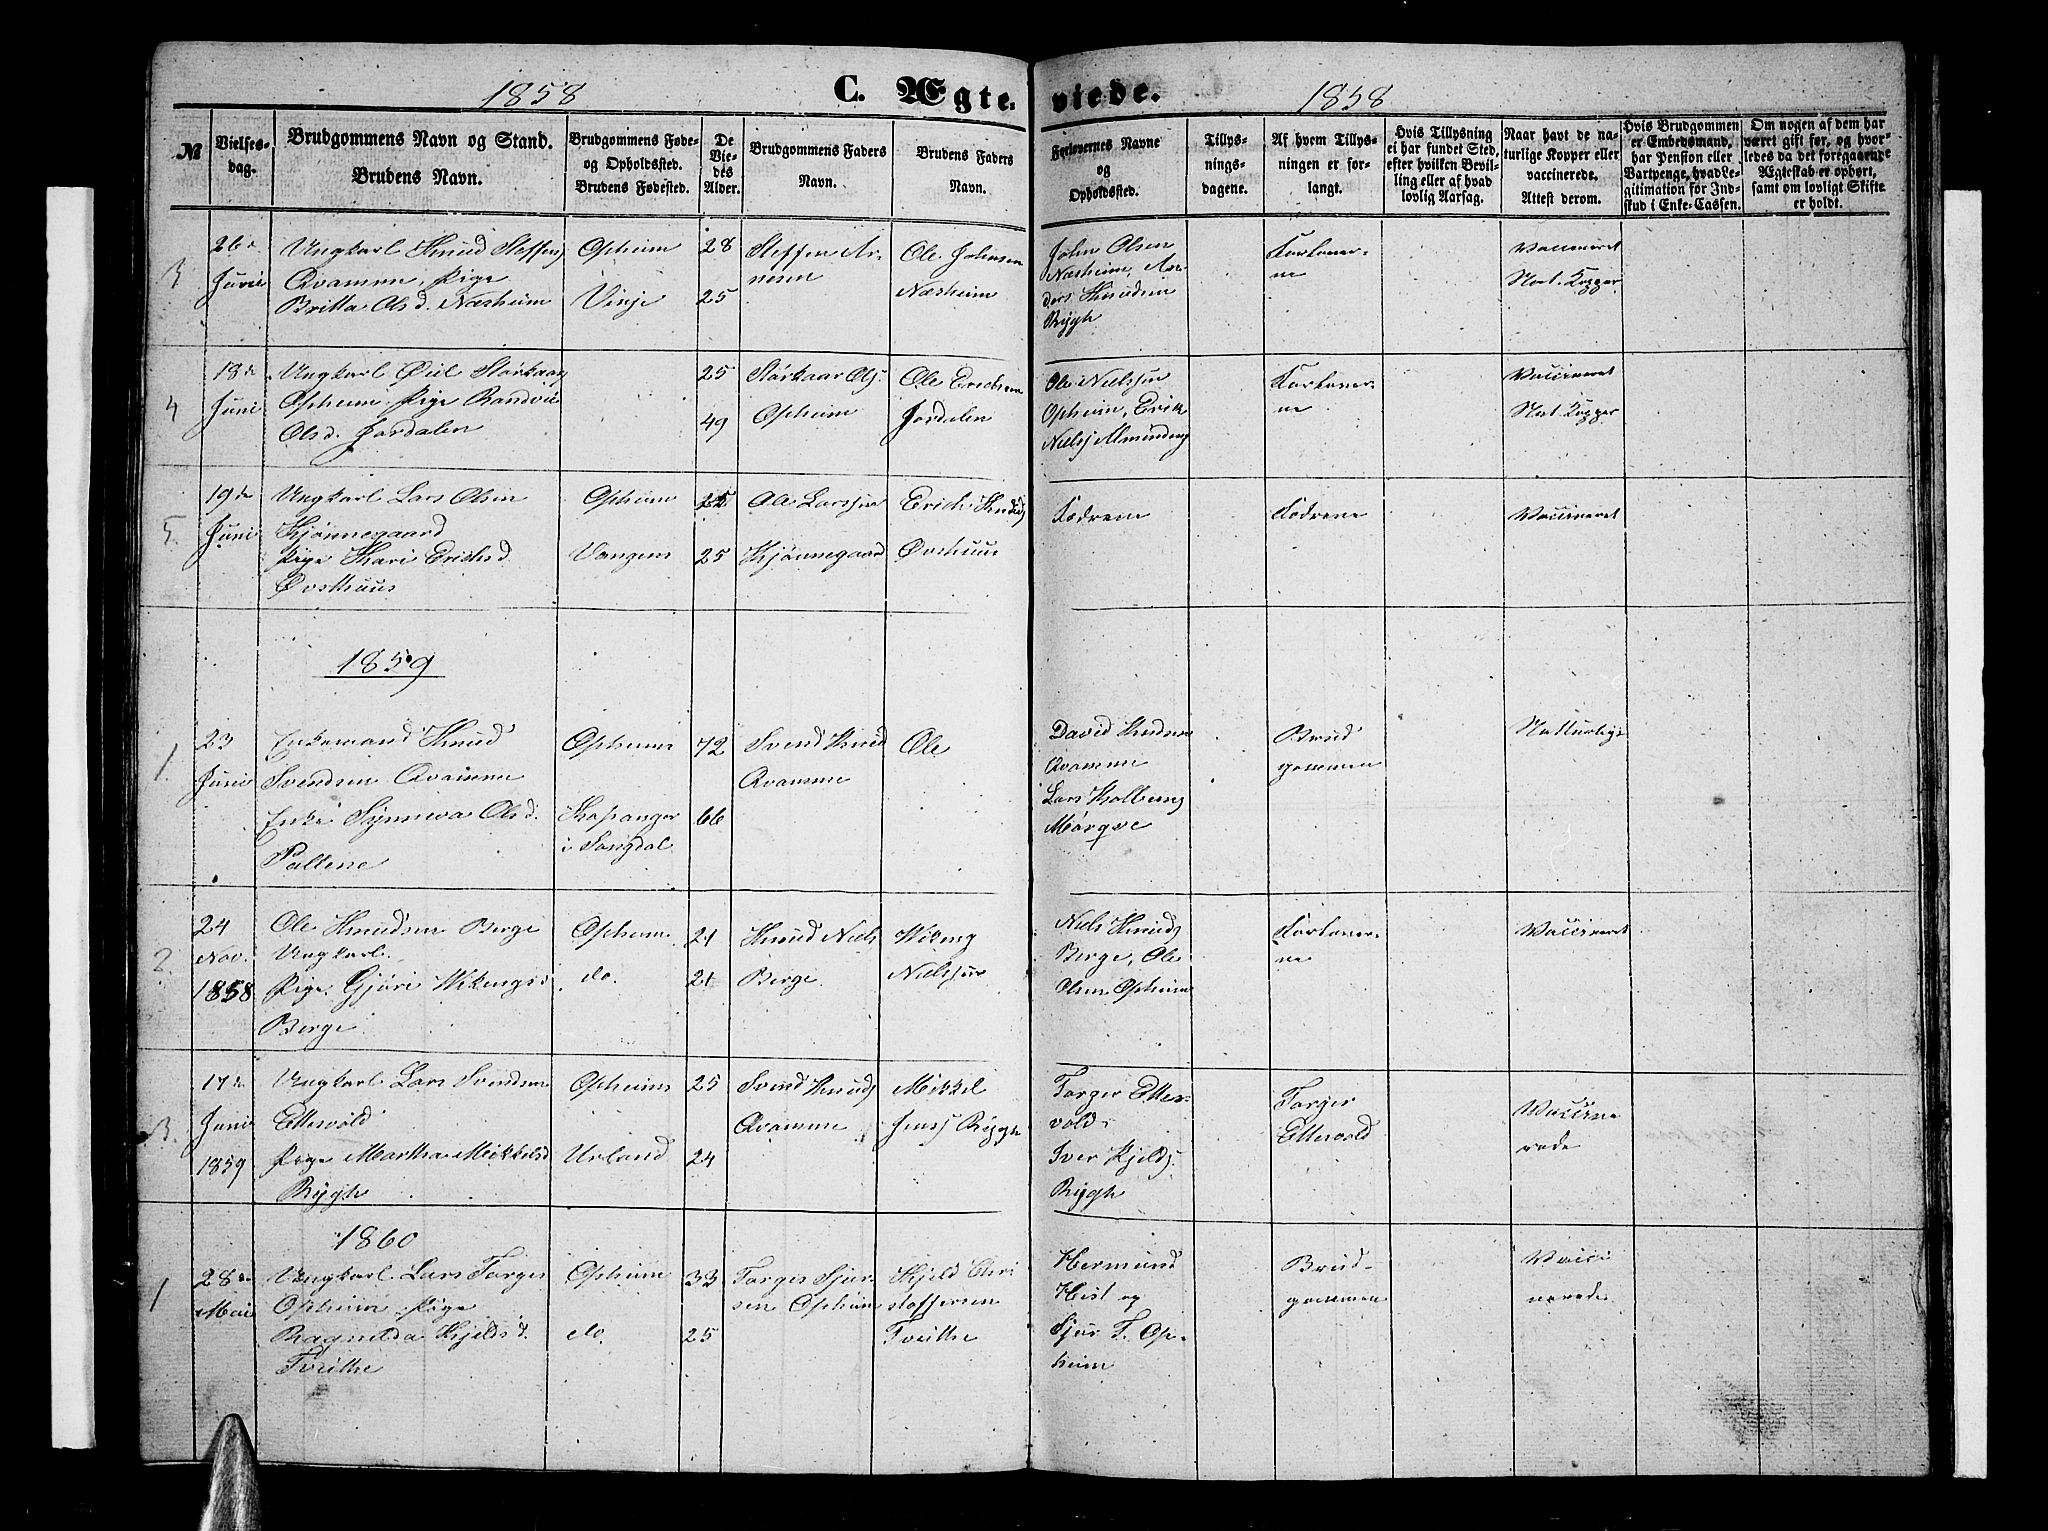 1858
C. Ægte-
viede.
1858
№
Vielses-
dag.
Brudgommens Navn og Stand.
Brudens Navn.
Brudgommens Føde-
og Opholdssted.
Brudens Fødested.
De
Vie-
des
Alder.
Brudgommens Faders
Navn.
Brudens Faders
Navn.
Forlovernes Navne
og
Opholdssted.
Tillys-
nings-
dagene.
Af hvem Tillys-
ningen er for-
langt.
Hvis Tillysning
ei har fundet Sted,
efter hvilken Bevil-
ling eller af hvad
lovlig Aarsag.
Naar havt de na-
turlige Kopper eller
vaccinerede.
Attest derom.
Hvis Brudgommen
er Embedsmand,
har Pension eller
Vartpenge, hvad Le-
gitimation for Ind-
skud i Enke-Cassen.
Om nogen af dem har
været gift før, og hvor-
ledes da det foregaaende
Ægteskab er ophørt,
samt om lovligt Skifte
er holdt.
3
26de
Juni
Ungkarl Knud Steffens
Qvamme, Pige
Britta Olsd. Næsheim
Opheim
Vinje
28
25
Steffen Ar-
nesen
Ole Johnsen
Næsheim
John Olsen
Næsheim, An-
ders Knudsen
Rygh
Forlover-
ne
Vaccineret
Nat. Kopper
4
18de
Juni
Ungkarl Øiel Størkaas
Opheim. Pige Randvei
Olsd. Jordalen
25
49
Størkaar Ols.
Opheim
Ole Erichsen
Jordalen
Ole Nielssen
Opheim, Erik
Niels. Alminding
Forlover-
ne
Vaccineret
Nat. Kopper
5.
19de
Juni
Ungkarl Lars Olsen
Kjønnegaard
Pige Kari Erichsd.
Øvsthuus
Opheim
Vangen
25
25
Ole Larssen
Kjønnegaard
Erich Knuds
Øvsthuus
Fædrene
Fædrene
Vaccineret
1859
1.
23
Juni
Enkemand Knud
Svendsen Qvamme
Enke Synneva Olsd.
Pallene
Opheim
Kopanger
i Songdal
72
66
Svend Knud
Qvamme
Ole
David Knudsen
Qvamme
Lars Kolbens
Mørqve
Brud
gommen
Natturlige
2.
24
Nov.
1858
Ole Knudsen Berge
Ungkarl.
Pige Gjøri Wikingsd
Berge
Opheim
do.
21
21
Knud Niels
Berge.
Wiking
Nielssen
Niels Knuds
Berge, Ole
Olsen Opheim
Forlover-
ne
Vaccineret
3.
17de
Juni
1859
Ungkarl Lars Svendsen
Ettevold
Pige Martha Mikkelsd
Rygh
Opheim
Urland
25
24
Svend Knuds
Qvamme
Mikkel
Jens. Rygh
Torger Ette-
vold.
Iver Kjelds.
Rygh
Torger
Ettevold
Vaccine
rede
1860
1
28de
Mai
Ungkarl Lars Torges
Opheim. Pige
Ragnilda Kjeldsd.
Tveithe
Opheim
do.
33
25
Torges Sjur-
sen Opheim
Kjeld Chri
stoffersen
Tveithe
Hermund
Hist og
Sjur T. Op-
heim
Brud-
gommen
Vacci
nerede